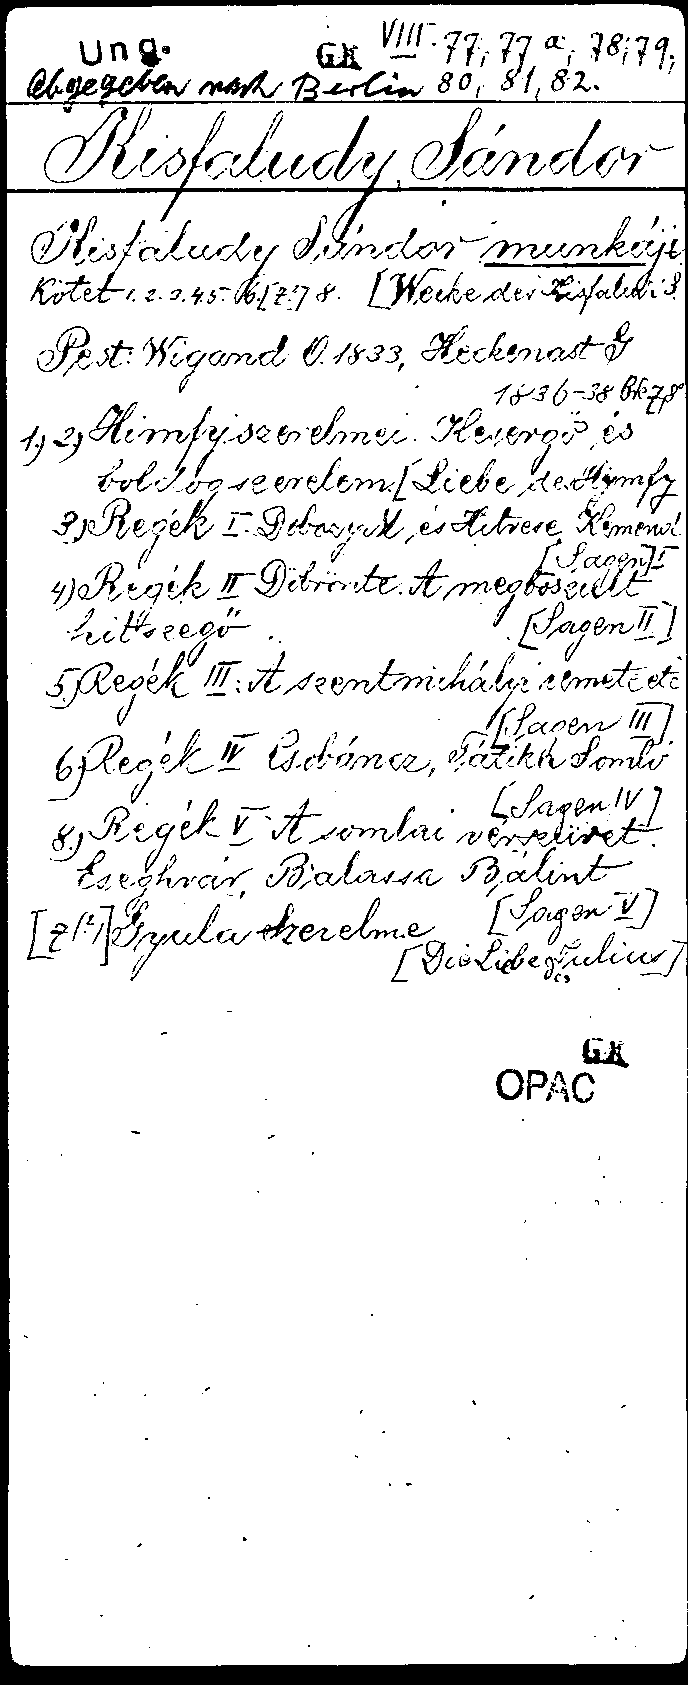 Ung. GK VIII. 77, 77a, 78, 79,
Abgegeben nach Berlin 80, 81, 82.
Kisfaludy, Sándor
Kisfaludy Sándor munkáji
Kötet 1. 2. 3. 4. 5. 6. [7?] 8. [Werke der Kisfaludi S.
Pest: Wigand O. 1833, Heckenast G
1836-38 Bk 7,8
1,) 2,) Himfy szerelmei. Kesergő és
boldog szerelem. [Liebe de. Hymfy
3,) Regék I. Dobozy M és Hitvese, Kemend
[Sagen] I
4,) Regék II Döbrönte. A megboszult
hitszegő. [Sagen II]
5,) Regék III: A szentmihályi remete etc
[Sagen III]
6,) Regék IV Csobáncz, Tátika Somló
[Sagen IV]
8,) Regék V A somlai vérszüret.
Eseghvár, Balassa Bálint
[Sagen V]
[7(?)] Gyula szerelme
[Die Liebe d. Julius]
GK
OPAC